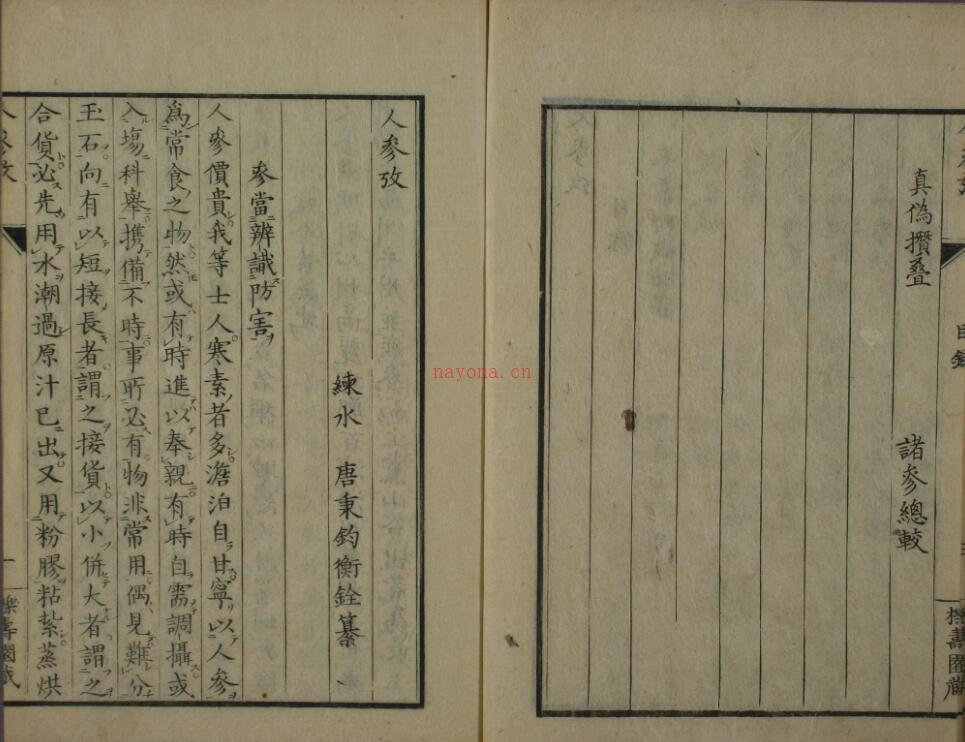 真偽攢叠 諸參總較
目錄
人參攷
練水 唐秉鈞衡銓纂
參當辨識防害
人參價貴我等士人寒素者多澹泊自甘寧以人參
爲常食之物然或有時進以奉親有時自需調攝或
入塲科舉攜備不時事所必有物非常用偶見難分
玉石向有以短接長者謂之接貨以小併大者謂之
合貨必先用水潮過原汁已出又用粉膠粘紮蒸烘
人參攷
一
nayona.cn